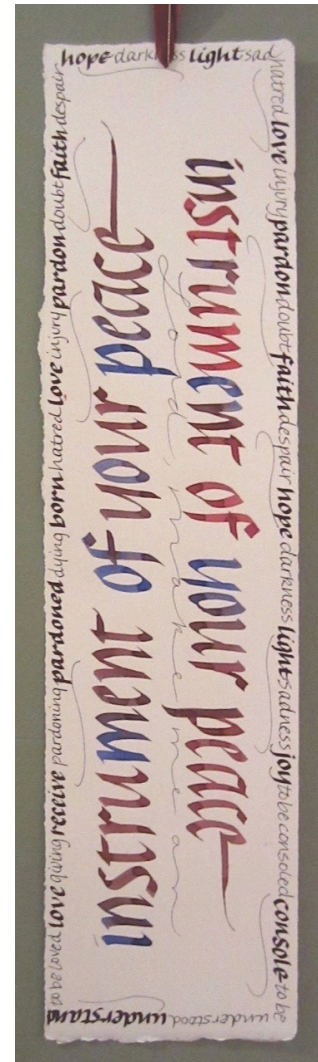 hope darkness light sad
hatred love injury pardon doubt faith despair hope darkness light sadness joy to be consoled console to be
understood understand
to be loved love giving receive pardoning pardoned dying born hatred love injury pardon doubt faith despair
instrument of your peace
Lord, make me an
instrument of your peace